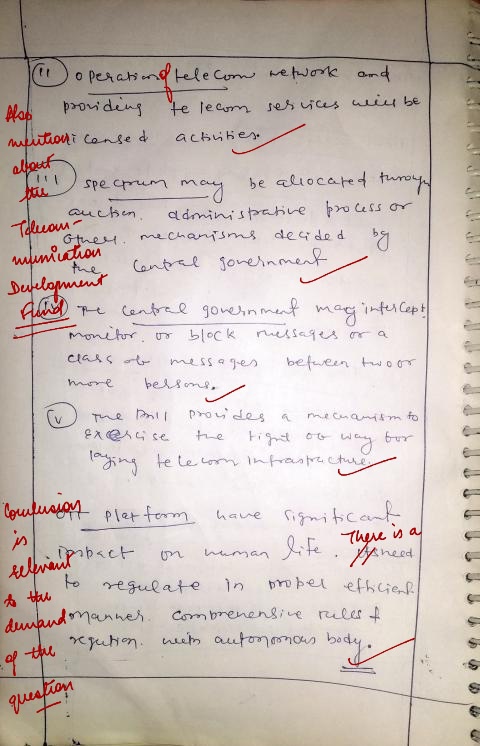 (ii) operation of telecom network and
providing telecom services will be
licensed activities.
(iii) spectrum may be allocated through
auction. administrative process or
other. mechanisms decided by
the central government
(iv) The central government may intercept.
monitor. or block messages or a
class of messages between two or
more persons.
(v) The bill provides a mechanism to
exercise the right of way for
laying telecom infrastructure.
OTT platform have significant
impact on human life. There is a need
to regulate in proper efficient
manner. comprehensive rules &
regution. with autonomous body.
Also
mention
about
the
Telecom-
munication
Development
Fund
Conclusion
is
relevant
to the
demand
of the
question